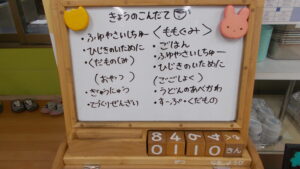 きょうのこんだて
・ふゆやさいしちゅー
・ひじきのいために
・くだものしみ
(おやつ)
・ぎゅうにゅう
・てづくりぜんざい
<ももぐみ>
・ごはん
・ふゆやさいしちゅー
・ひじきのいために
(ごごしょく)
・うどんのあべかわ
・すーぷ・くだもの
8 4
0 1 1 0 さん